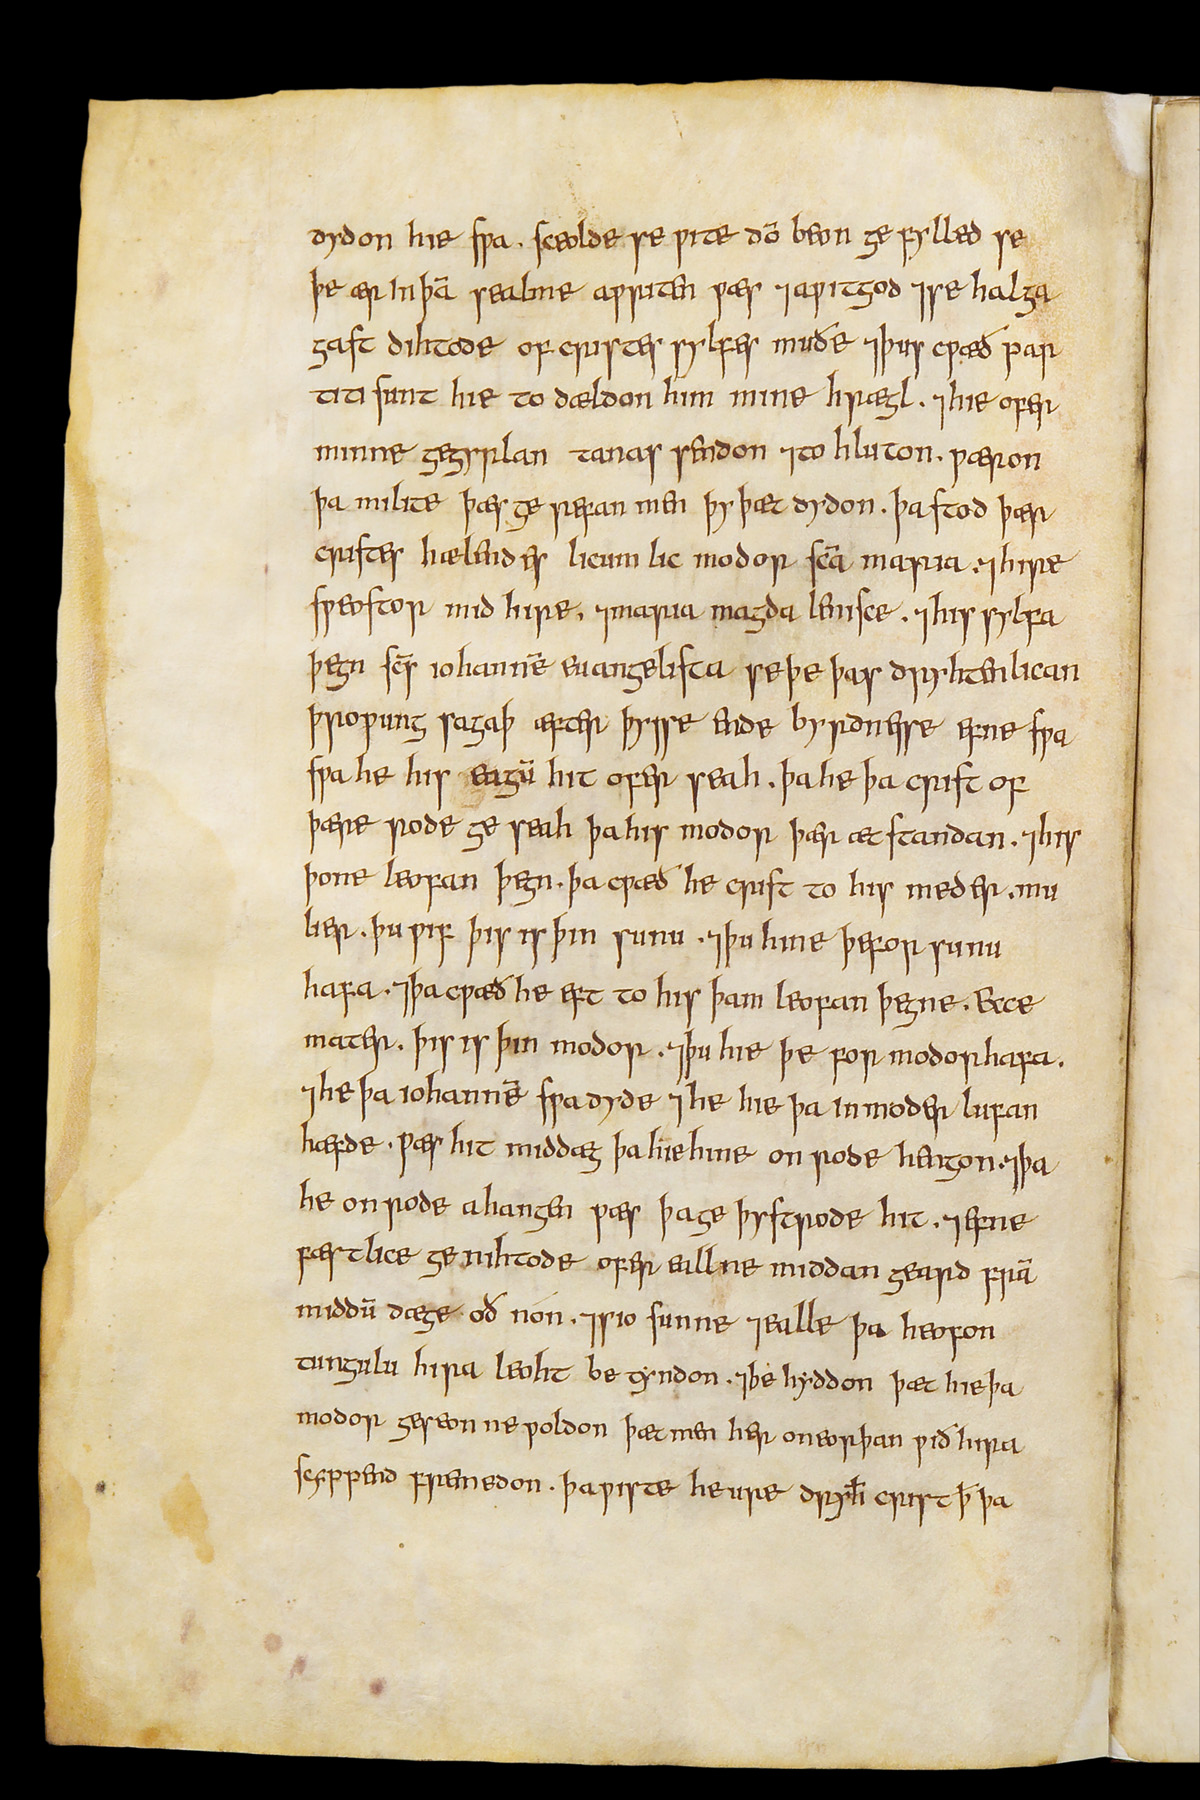 dydon hie swa . sceolde se wite dō beon ge fylled se
þe ær in þā sealme awriten wæs ⁊ awitgod ⁊ se halga
gast dihtode of cristes sylfes muðe ⁊ þus cwæð par
titi sunt hie to dældon him mine hrægl . ⁊ hie ofer
minne gegyrlan tanas sendon ⁊ to hluton . wæron
þa milite þæs ge refan men þy þæt dydon . þa stod þær
cristes hælendes licum lic modor sc̄a maria . ⁊ hire
sweostor mid hire . ⁊ maria magda lenisce . ⁊ his sylfa
þegn sc̄s iohannē euangelista se þe þas dryhtenlican
þrowung sagaþ æfter þysse ende byrdnesse efne swa
swa he his eagū hit ofer seah . þa he þa crist of
þære rode ge seah þa his modor þær æt standan . ⁊ his
þone leofan þegn . þa cwæð he crist to his meder . mu
lier . þu wif þis is þin sunu . ⁊ þu hine þe for sunu
hafa . ⁊ þa cwæð he eft to his þam leofan þegne . Ecce
mater . þis is þin modor . ⁊ þu hie þe for modor hafa .
⁊ he þa iohannē swa dyde ⁊ he hie þa in moder lufan
hæfde . wæs hit middæg þa hie hine on rode hengon . ⁊ þa
he on rode ahangen wæs þa ge þystrode hit . ⁊ efne
fæstlice ge nihtode ofer eallne middan geard frā
middū dæge oð nón . ⁊ sio sunne ⁊ ealle þa heofon
tungulu hira leoht be tyndon . ⁊ be hyddon þæt hie þa
modor geseon ne woldon þæt men her on eorþan wið hira
scyppend fremedon . þa wiste he ure dryh̄ crist þ̄ þa